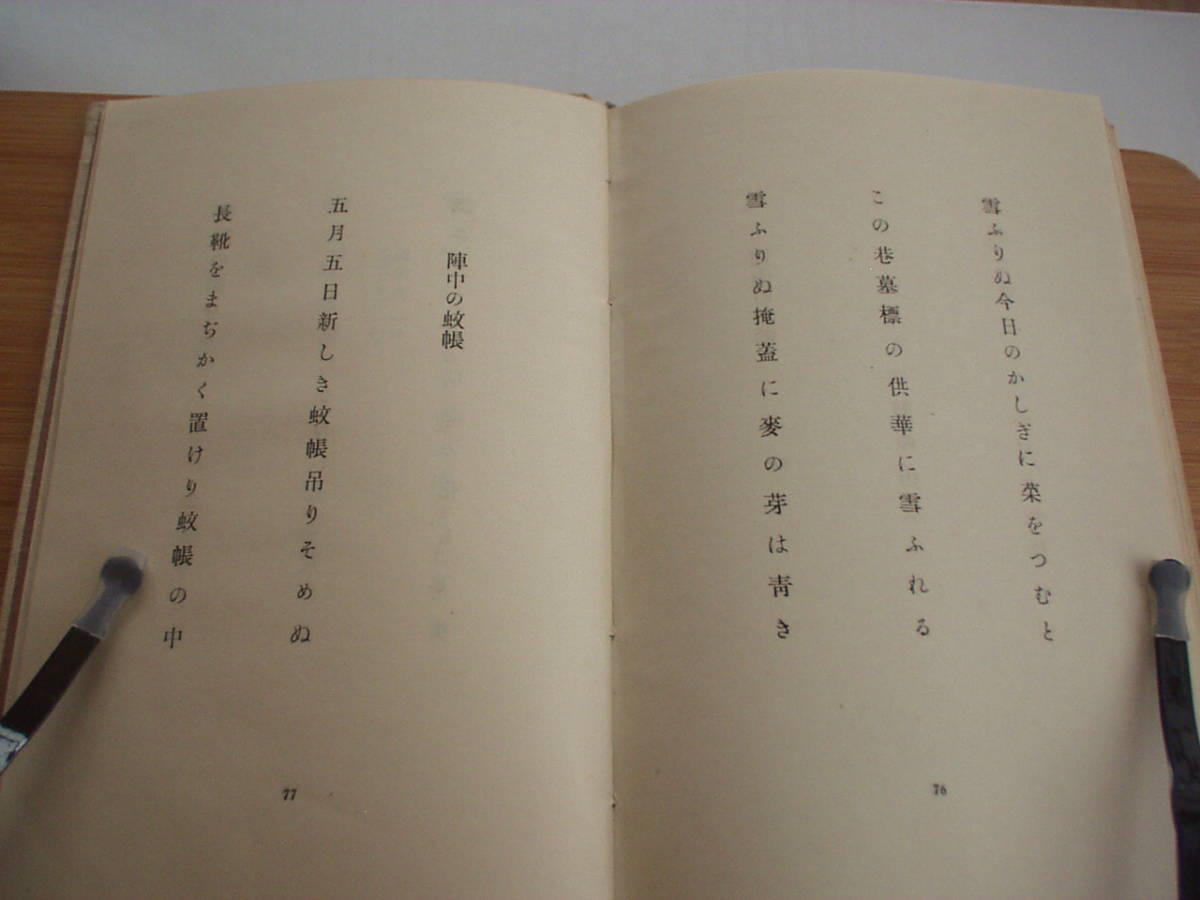 雪ふりぬ今日のかしぎに菜をつむと
この巷墓標の供華に雪ふれる
雪ふりぬ掩蓋に麥の芽は靑き
76
陣中の蚊帳
五月五日新しき蚊帳吊りそめぬ
長靴をまぢかく置けり蚊帳の中
77